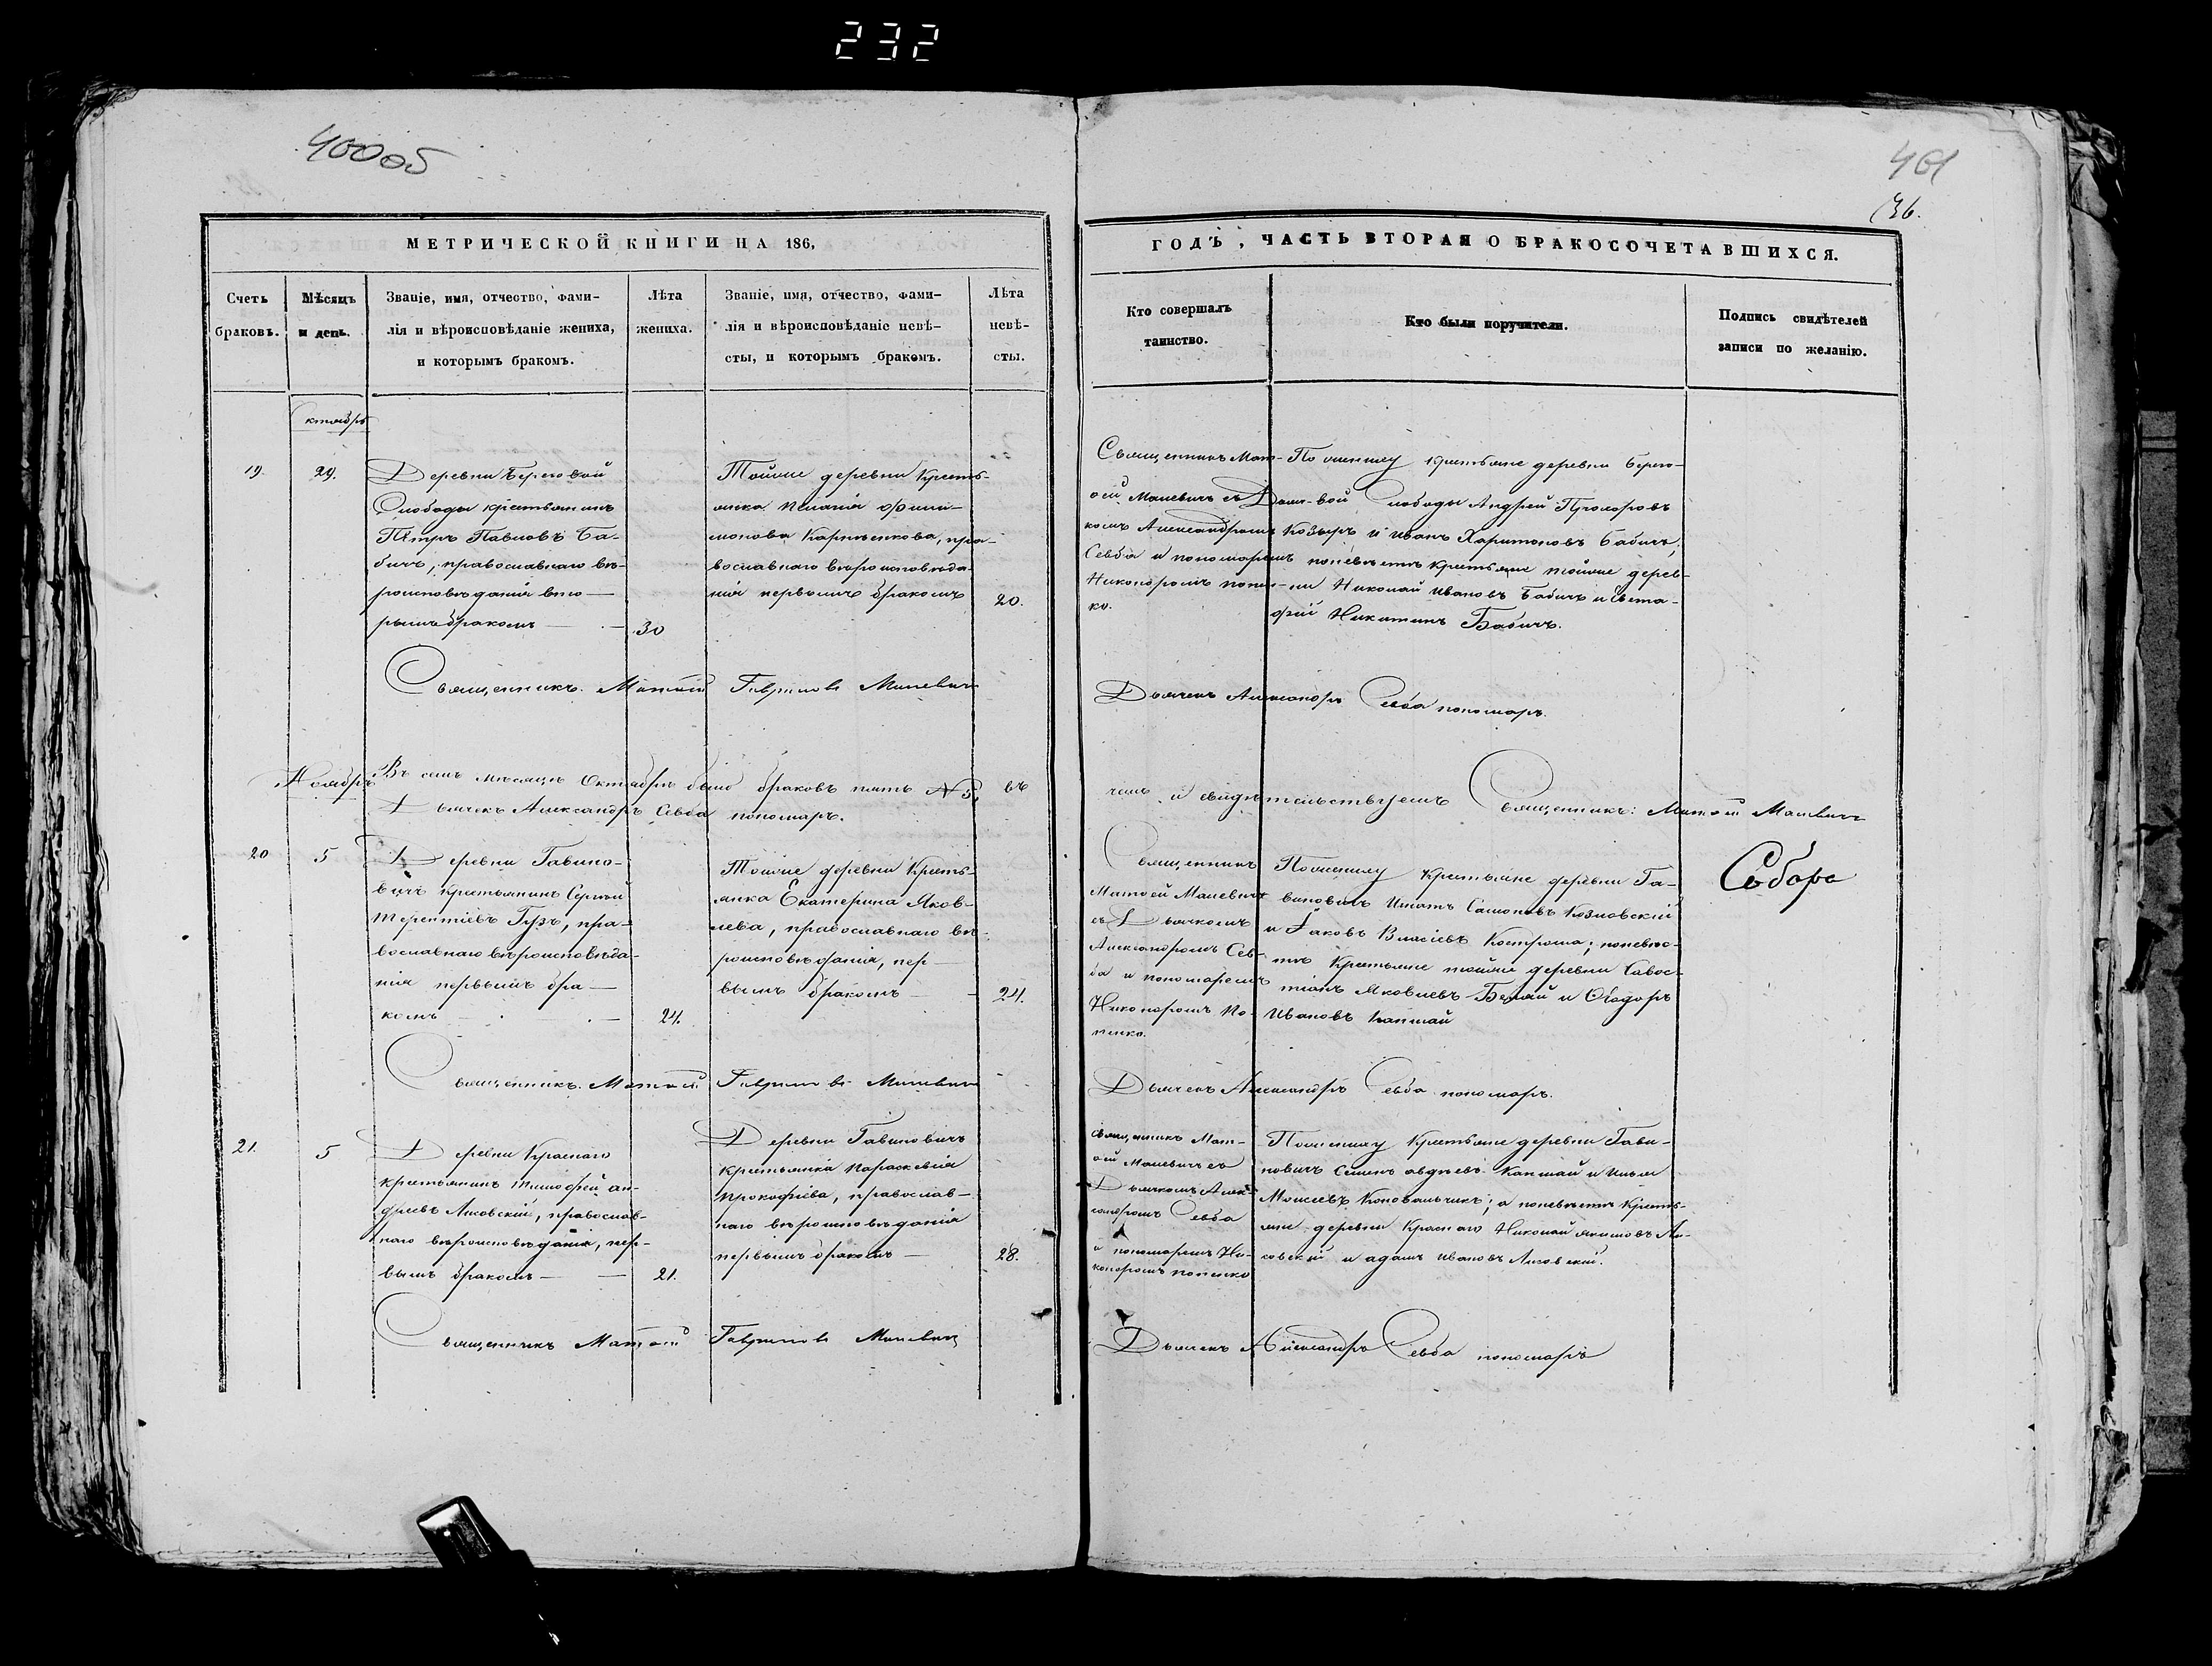 232
400об
401
36.
МЕТРИЧЕСКОЙ КНИГИ НА 186,
ГОДЪ, ЧАСТЬ ВТОРАЯ О БРАКОСОЧЕТАВШИХСЯ.
Счетъ
браковъ.
Мѣсяцъ
и день.
Званіе, имя, отчество, фами-
лія и вѣроисповѣданіе жениха,
и которымъ бракомъ.
Лѣта
жениха.
Званіе, имя, отчество, фами-
лія и вѣроисповѣданіе невѣ-
сты, и которымъ бракомъ.
Лѣта
невѣ-
сты.
Кто совершалъ
таинство.
Кто были поручители.
Подпись свидѣтелей
записи по желанію.
Октябрь
19.
29.
Деревни Береговой
Слободы крестьянинъ
Петръ Павловъ Ба-
бичъ, православнаго вѣ-
роисповѣданія вто-
рымъ бракомъ
30
Тойже деревни Кресть-
янка Пелагія Фили-
монова Карпенкова, пра-
вославнаго вѣроисповѣда-
нія первымъ бракомъ
20.
Священникъ Мат-
ѳей Малевичъ съ Дьяч-
комъ Александромъ
Севба и пономаремъ
Никоноромъ Попен-
ко.
По жениху крестьяне деревни Берего-
вой Слободы Андрей Прохоровъ
Козырь и Иванъ Харитоновъ Бабичъ;
по невѣстѣ крестьяне тойже дерев-
ни Николай Ивановъ Бабичъ и Евста-
фій Никитинъ Бабичъ.
Священникъ Матѳей Гавриловъ Малевичъ
Дьячекъ Александръ Севба пономарь.
Ноябрь
Въ семъ мѣсяцѣ Октябрѣ было браковъ пять № 5, въ
чемъ и свидѣтельствуемъ Священникъ: Матѳей Малевичъ
Дьячекъ Александръ Севба пономарь.
20
5
Деревни Гавино-
вичъ крестьянинъ Сергѣй
Терентіевъ Гузъ, пра-
вославнаго вѣроисповѣда-
нія первымъ бра-
комъ
24.
Тойже деревни Кресть-
янка Екатерина Яков-
лева, православнаго вѣ-
роисповѣданія, пер-
вымъ бракомъ
24.
Священникъ
Матѳей Малевичъ
съ Дьячкомъ
Александромъ Сев-
ба и пономаремъ
Никоноромъ По-
пенко.
По жениху Крестьяне деревни Га-
виновичъ Игнатъ Самоновъ Козловскій
и Іаковъ Власіевъ Кострома; по невѣс-
тѣ Крестьяне тойже деревни Савос-
тіанъ Яковлевъ Белый и Ѳеодоръ
Ивановъ Капшай
Собора
Священникъ Матѳей Гавриловъ Малевичъ
Дьячекъ Александръ Севба пономарь.
21.
5
Деревни Краснаго
крестьянинъ Тимофей Ан-
дреевъ Лисовскій, православ-
наго вѣроисповѣданія, пер-
вымъ бракомъ
21.
Деревни Гавиновичъ
крестьянка Параскевія
Прокофіева, православ-
наго вѣроисповѣданія
первымъ бракомъ
28.
Священникъ Мат-
ѳей Малевичъ съ
Дьячкомъ Алек-
сандромъ Севба
и пономаремъ Ни-
коноромъ Попенко
По жениху Крестьяне деревни Гави-
новичъ Семенъ Авдѣевъ Капшай и Илья
Моисеевъ Коновальчикъ; а по невѣстѣ Кресть-
яне деревни Краснаго Николай Якимовъ Ли-
совскій и Адамъ Ивановъ Лисовскій.
Священникъ Матѳей Гавриловъ Малевичъ
Дьячекъ Александръ Севба пономарь